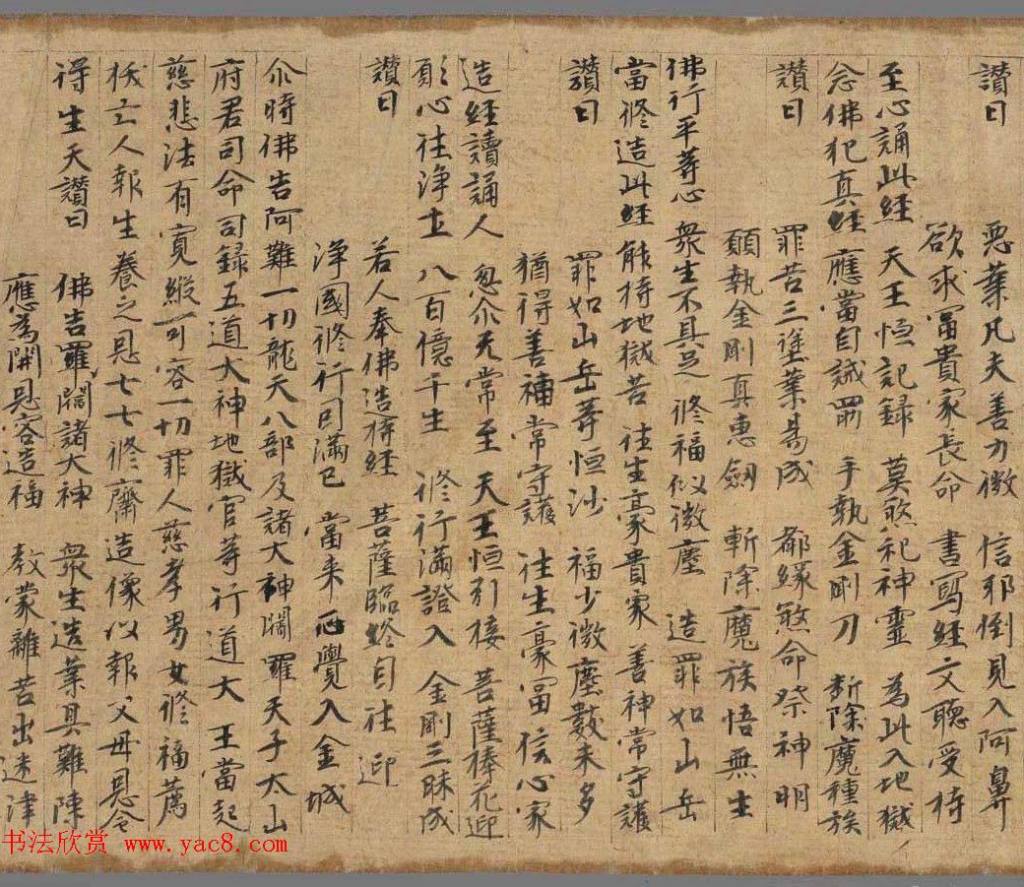 讚曰 惡業凡夫善力微 信耶倒見入阿鼻
欲求冨貴家長命 書寫經文聽受持
至心誦此經 天王恒記録 莫煞祀神靈 為此入地獄
念佛犯真經 應當自誡勗 手執金剛刀 斬除魔種族
讚曰 罪苦三塗業易成 都緣煞命祭神明
願執金剛真惠劒 斬除魔族悟無生
佛行平等心 衆生不具足 修福似微塵 造罪如山岳
當修造此經 能持地獄苦 往生豪貴家 善神常守護
讚曰 罪如山岳等恒沙 福少微塵數未多
猶得善神常守護 往生豪冨信心家
造經讀誦人 忽尒无常至 天王恒引接 菩薩捧花迎
願心往浄土 八百億千生 修行滿證入 金剛三昧成
讚曰 若人奉佛造持經 菩薩臨終自往迎
浄國修行因滿已 當来正覺入金城
尒時佛告阿難一切龍天八部及諸大神閻羅天子太山
府君司命司録五道大神地獄官等行道大王當起
慈悲法有寛縱可容一切罪人慈孝男女修福薦
拔亡人報生養之恩七七修齋造像以報父母恩令
得生天讚曰 佛告羅閻諸大神 衆生造業具難陳
應為開恩容造福 教蒙離苦出迷津
书法欣赏 www.yac8.com